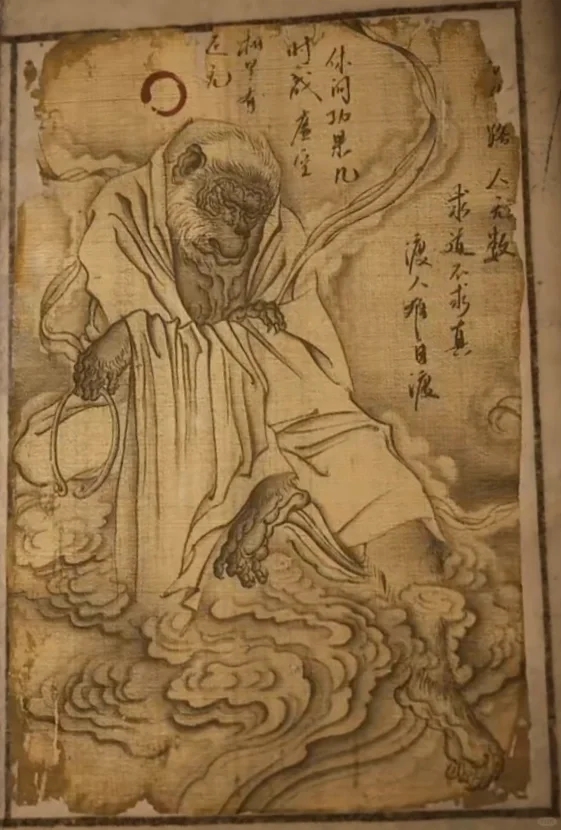 路人无数
求道不求真
渡人难自渡
休问功果几
时成虚空
相里有
还无